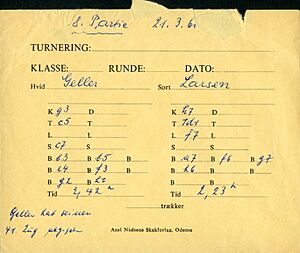 8. Partie 21.3.61
TURNERING:
KLASSE: RUNDE: DATO:
Hvid Geller Sort Larsen
K g3 D K h7 D
T c5 T T Td1 T
L L L f7 L
S c7 S S S
B a3 B b5 B B a7 B f6 B g7
B a4 B f3 B B h6 B B
B g2 B h2 B B
Tid 2,42 Tid 2,23
trækker
Geller hat seinen
41. Zug
Axel Nielsens Skakforlag, Odense